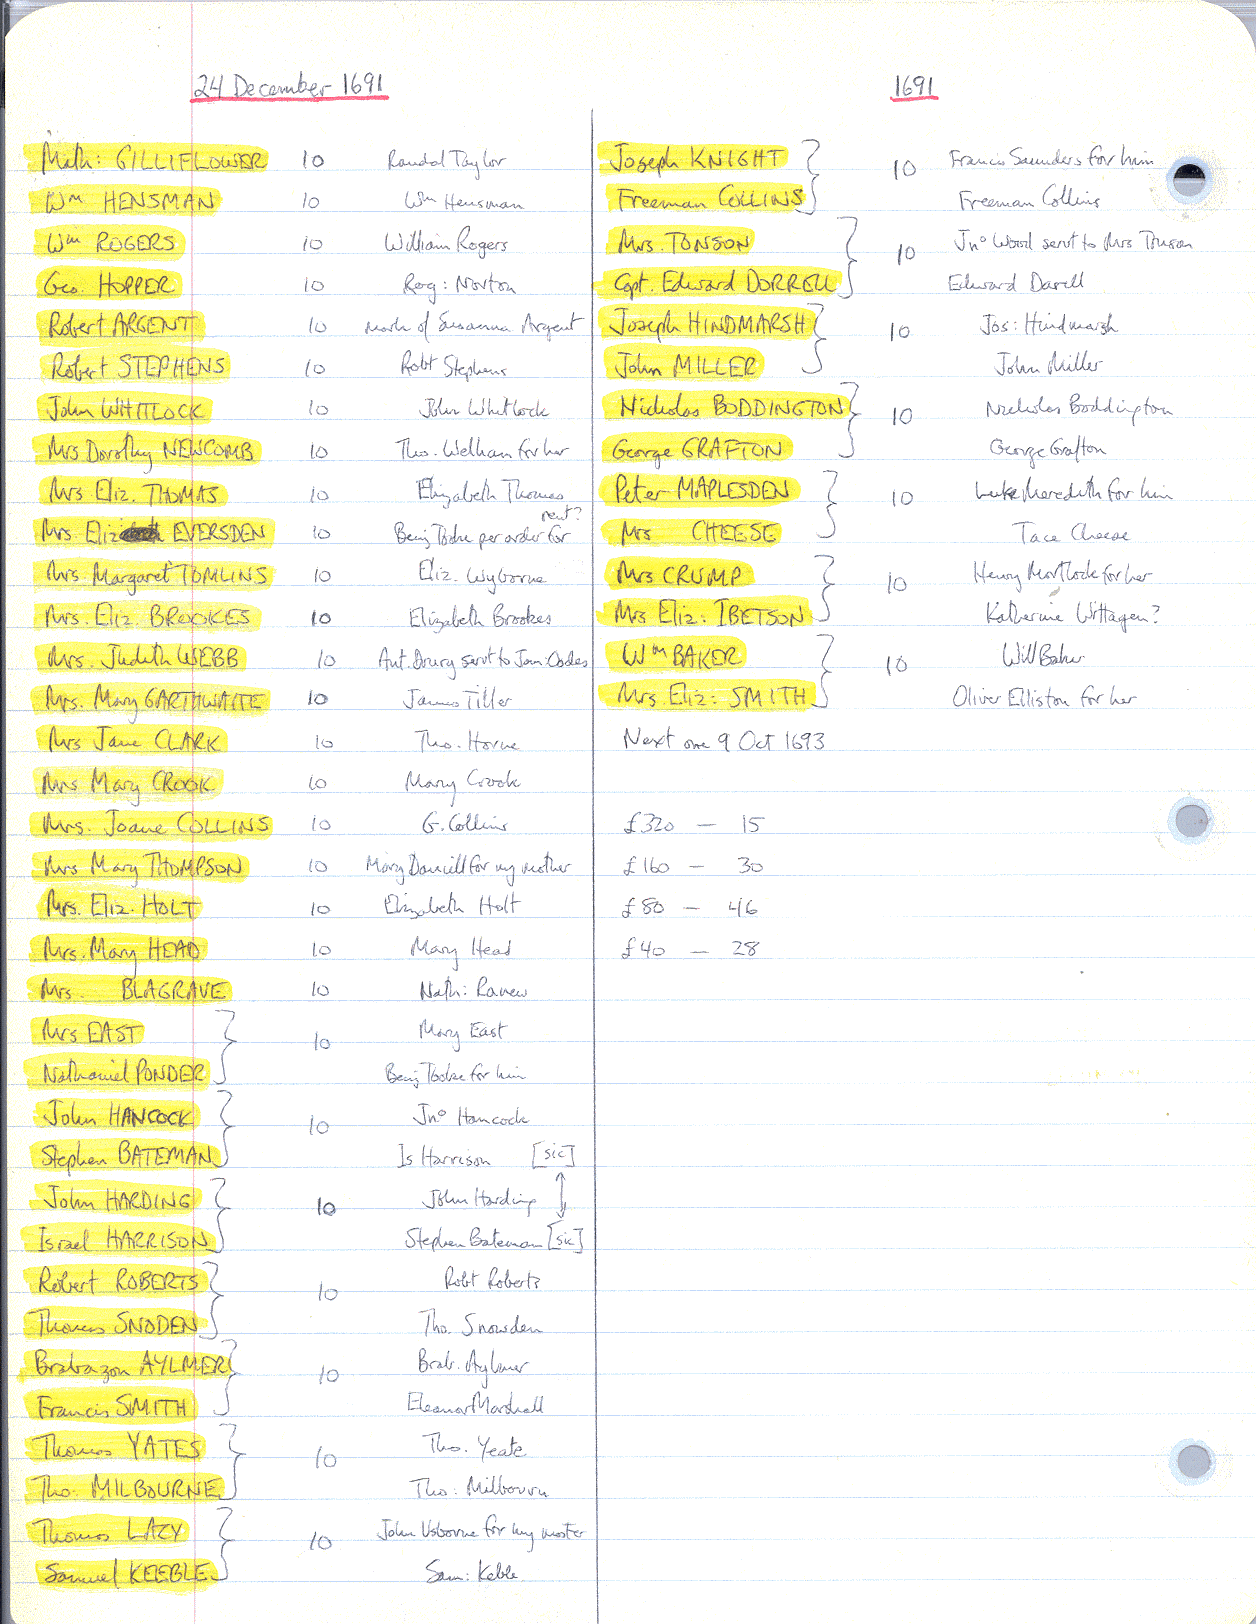 24 December 1691
Math: GILLIFLOWER 10 Randal Taylor
Wm HENSMAN 10 Wm Hensman
Wm ROGERS 10 William Rogers
Geo. HOPPER 10 Rog: Norton
Robert ARGENT 10 mark of Susanna Argent
Robert STEPHENS 10 Robt Stephens
John WHITLOCK 10 John Whitlock
Mrs Dorothy NEWCOMB 10 Tho. Welham for her
Mrs Eliz. THOMAS 10 Elizabeth Thomas
rent?
Mrs. Eliz EVERSDEN 10 Benj Tooke per order for
Mrs. Margaret TOMLINS 10 Eliz. Wyborne
Mrs. Eliz. BROOKES 10 Elizabeth Brookes
Mrs. Judith WEBB 10 Ant. Drury servt to Jam. Oades
Mrs. Mary GARTHWAITE 10 James Tiller
Mrs Jane CLARK 10 Tho. Horne
Mrs Mary CROOK 10 Mary Crook
Mrs. Joane COLLINS 10 G. Collins
Mrs Mary THOMPSON 10 Mary for my mother
Mrs. Eliz. HOLT 10 Elizabeth Holt
Mrs. Mary HEAD 10 Mary Head
Mrs. BLAGRAVE 10 Nath: Ranew
Mrs EAST Mary East
10
Nathaniel PONDER Benj Tooke for him
John HANCOCK Jno Hancock
10
Stephen BATEMAN Is Harrison [sic]
John HARDING 10 John Harding
Israel HARRISON Stephen Bateman [sic]
Robert ROBERTS Robt Roberts
10
Thomas SNODEN Tho. Snowden
Brabazon AYLMER Brab. Aylmer
10
Francis SMITH Eleanor Marshall
Thomas YATES Tho. Yeate
10
Tho. MILBOURNE Tho: Milbourn
Thomas LACY John Usborne for my master
10
Samuel KEEBLE Sam: Keble
1691
Joseph KNIGHT Francis Saunders for him
10
Freeman COLLINS Freeman Collins
Mrs. TONSON Jno Wood servt to Mrs Tonson
10
Capt. Edward DORRELL Edward Darell
Joseph HINDMARSH 10 Jos: Hindmarsh
John MILLER John Miller
Nicholas BODDINGTON 10 Nicholas Boddington
George GRAFTON George Grafton
Peter MAPLESDEN 10 Luke Meredith for him
Mrs CHEESE Tace Cheese
Mrs CRUMP 10 Henry Mortlock for her
Mrs Eliz: IBETSON Katherine Wittagen?
Wm BAKER 10 Will Baker
Mrs. Eliz: SMITH Oliver Elliston for her
Next one 9 Oct 1693
£320 — 15
£160 — 30
£80 — 46
£40 — 28